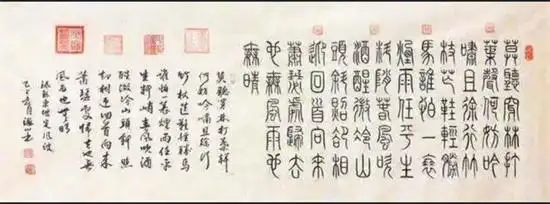 莫聽穿林打
葉聲何妨吟
嘯且徐行竹
杖芒鞋輕勝
馬誰怕一蓑
煙雨任平生
料峭春風吹
酒醒微冷山
頭斜照卻相
迎回首向來
蕭瑟處歸去
也無風雨也
無晴
莫聽穿林打葉聲
何妨吟嘯且徐行
竹杖芒鞋輕勝馬
誰怕一蓑煙雨任平
生料峭春風吹酒
醒微冷山頭斜照
卻相迎回首向來
蕭瑟處歸去也無
風雨也無晴
蘇東坡定風波